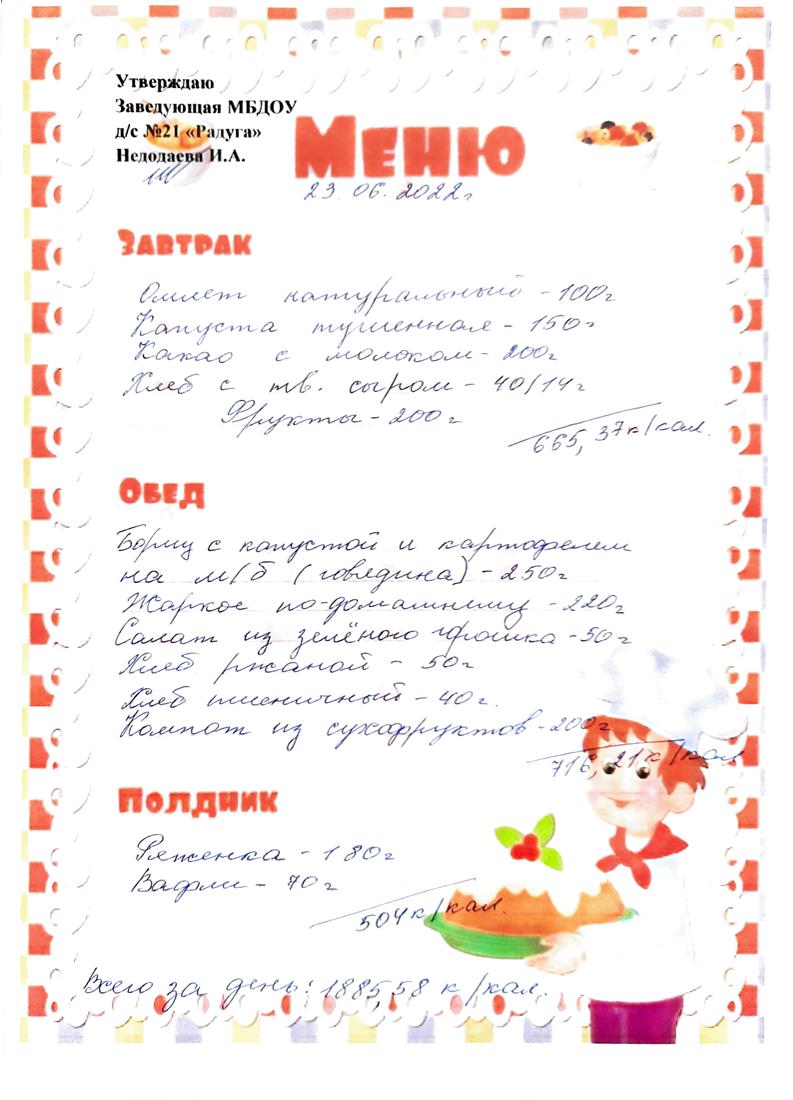 Утверждаю
Заведующая МБДОУ
д/с №21 «Радуга»
Недодаева И.А.
Меню
23.06.2022г
Завтрак
Омлет натуральный - 100г
Капуста тушенная - 150г
Какао с молоком - 200г
Хлеб с тв. сыром - 40/14г
Фрукты - 200г
665,37к/кал.
Обед
Борщ с капустой и картофелем
на м/б (говядина) - 250г
Жаркое по-домашнему - 220г
Салат из зелёного горошка - 50г
Хлеб ржаной - 50г
Хлеб пшеничный - 40г.
Компот из сухофруктов - 200г
716,21к/кал
Полдник
Ряженка - 180г
Вафли - 70г
504к/кал.
Всего за день: 1885,58 к/кал.